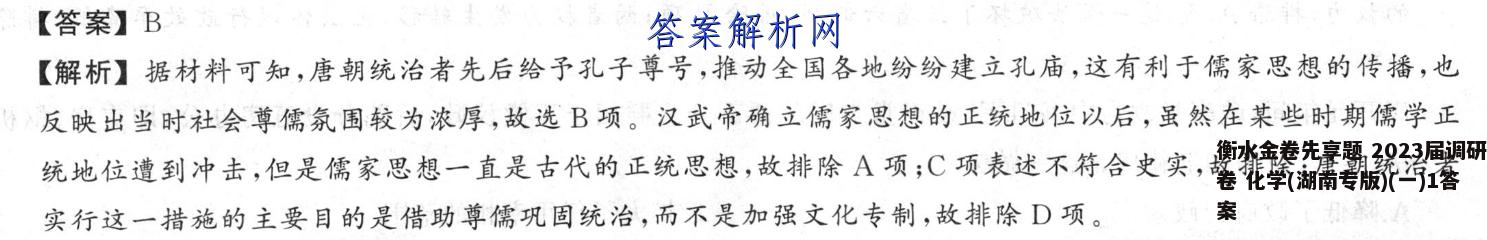 【答案】B
答案解析网
【解析】据材料可知,唐朝统治者先后给予孔子尊号,推动全国各地纷纷建立孔庙,这有利于儒家思想的传播,也
反映出当时社会尊儒氛围较为浓厚,故选B项。汉武帝确立儒家思想的正统地位以后,虽然在某些时期儒学正
统地位遭到冲击,但是儒家思想一直是古代的正统思想,故排除A项;C项表述不符合史实,故排除;唐朝统治者
实行这一措施的主要目的是借助尊儒巩固统治,而不是加强文化专制,故排除D项。
衡水金卷先享题 2023届调研
卷 化学(湖南专版)(一)1答
案